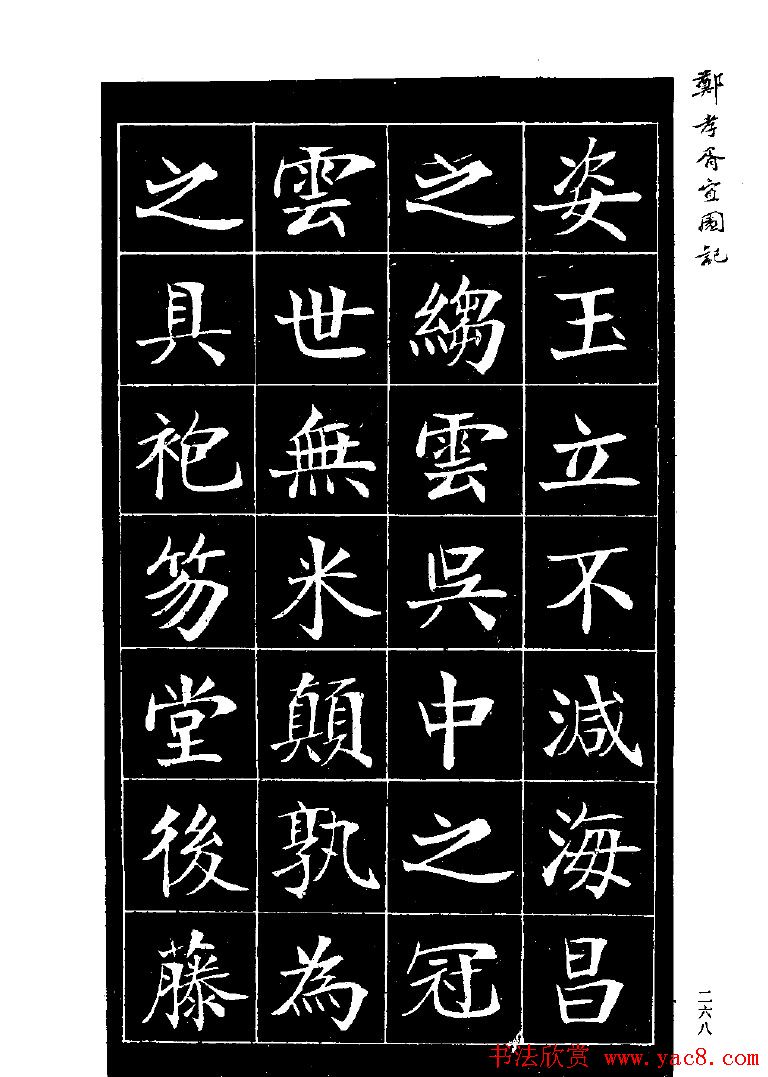 鄭孝胥宜園記
姿玉立不減海昌
之縐雲吳中之冠
雲世無米顛孰為
之具袍笏堂後藤
二六八
书法欣赏 www.yac8.com